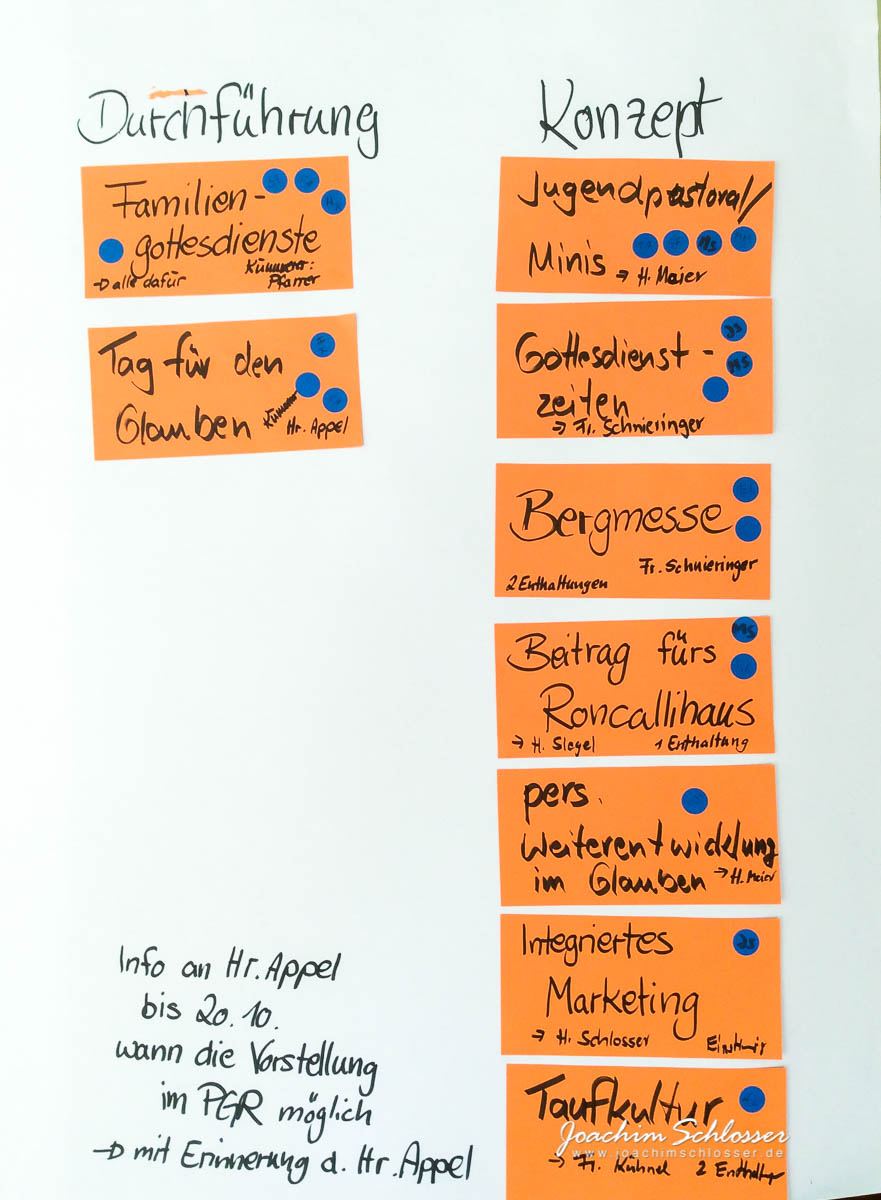 Durchführung
Familien-
gottesdienste
→ alle dafür
Kümmerer:
Pfarrer
Tag für den
Glauben
Kümmerer
Hr. Appel
Info an Hr. Appel
bis 20.10.
wann die Vorstellung
im PGR möglich
→ mit Erinnerung d. Hr. Appel
Konzept
Jugendpastoral/
Minis → H. Maier
MS
Gottesdienst-
zeiten
→ Fr. Schnieringer
JS
MS
Bergmesse
Fr. Schnieringer
2 Enthaltungen
Beitrag fürs
Roncallihaus
→ H. Siegel 1 Enthaltung
MS
pers.
Weiterentwicklung
im Glauben → H. Maier
Integriertes
Marketing
→ H. Schlosser
JS
Taufkultur
→ Fr. Kühnel 2 Enthalt
Joachim Schlosser
www.joachimschlosser.de